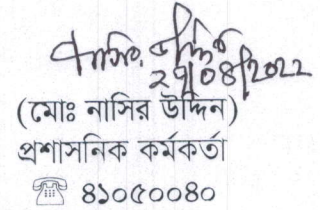 নাসির উদ্দিন
২৭/০৪/2022
(মোঃ নাসির উদ্দিন)
প্রশাসনিক কর্মকর্তা
☎ ৪১০৫০০৪০